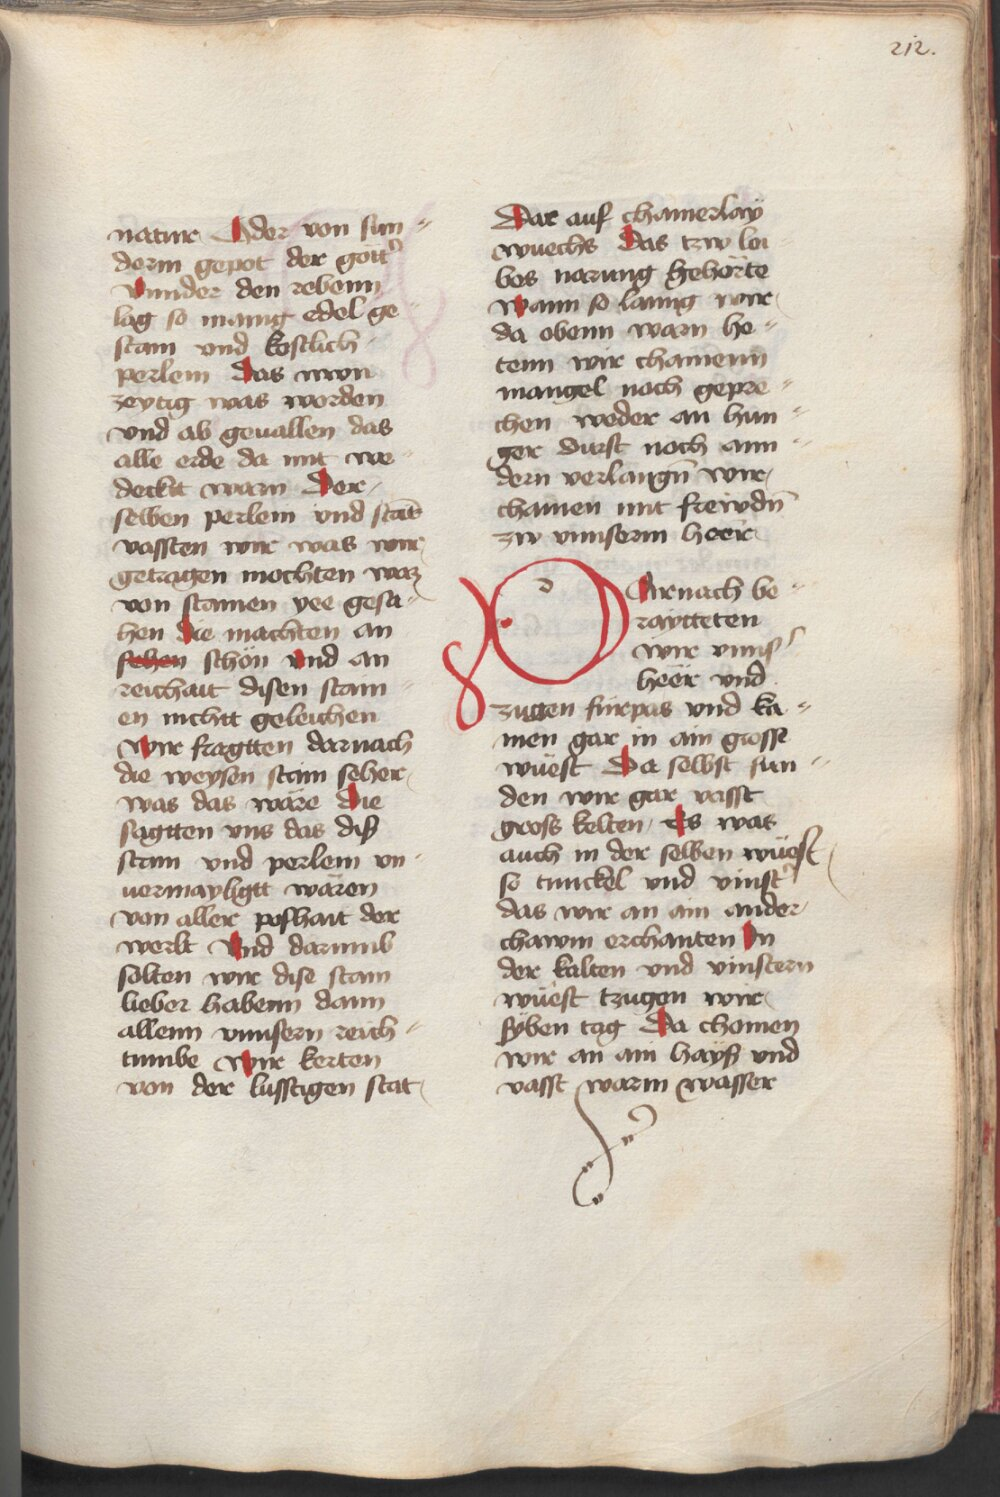 212.
natur Oder von sun„
derm gepot der gott᷑
Vnnder den rebenn
lag so manig edel ge
stain vnd kostlich„
perlein Das nvn
zeytig was worden
vnd ab geuallen das
alle erde da mit we„
deckt warn Der
selben perlein vnd stain̄
vassten wir was wir
getragen mochten waz
von stainen yee gesa„
hen die machten an
sehen schön vnd an
reichait disen stain„
en nichtt geleichen
Wir fragtten darnach
die weysen stain seher
was das wäre Die
sagtten vns das diß
stain vnd perlein vn„
uermayligtt wären
von aller poshait der
werlt Vnd darumb
solten wir dise stain
lieber habenn dann
allenn vnnsern reich„
tumbe Wir kerten
von der lusstigen stat
Dar auf chainerlaÿ
wuechs Das tzw lei„
bes narung gehörte
Wann so lanng wir
da obenn warn he„
tenn wir chainenn
mangel noch gepre„
chen weder an hun„
ger durst noch ann„
dern verlangn̄ wir
chamen mit frewdn̄
zw vnnserm heer
DArnach be„
raytteten
wir vnns᷑
heer vnd
zugen fürpas vnd ka„
men gar in ain grosse
wüest Da selbst fun„
den wir gar vasst
gross kelten Es was
auch in der selben wüest
so tunckel vnd vinst᷑
das wir an ain ander
chawm erchanten In
der kalten vnd vinstern
wüest tzugen wir
syben tag Da chomen
wir an ain hayß vnd
vasst warm wasser